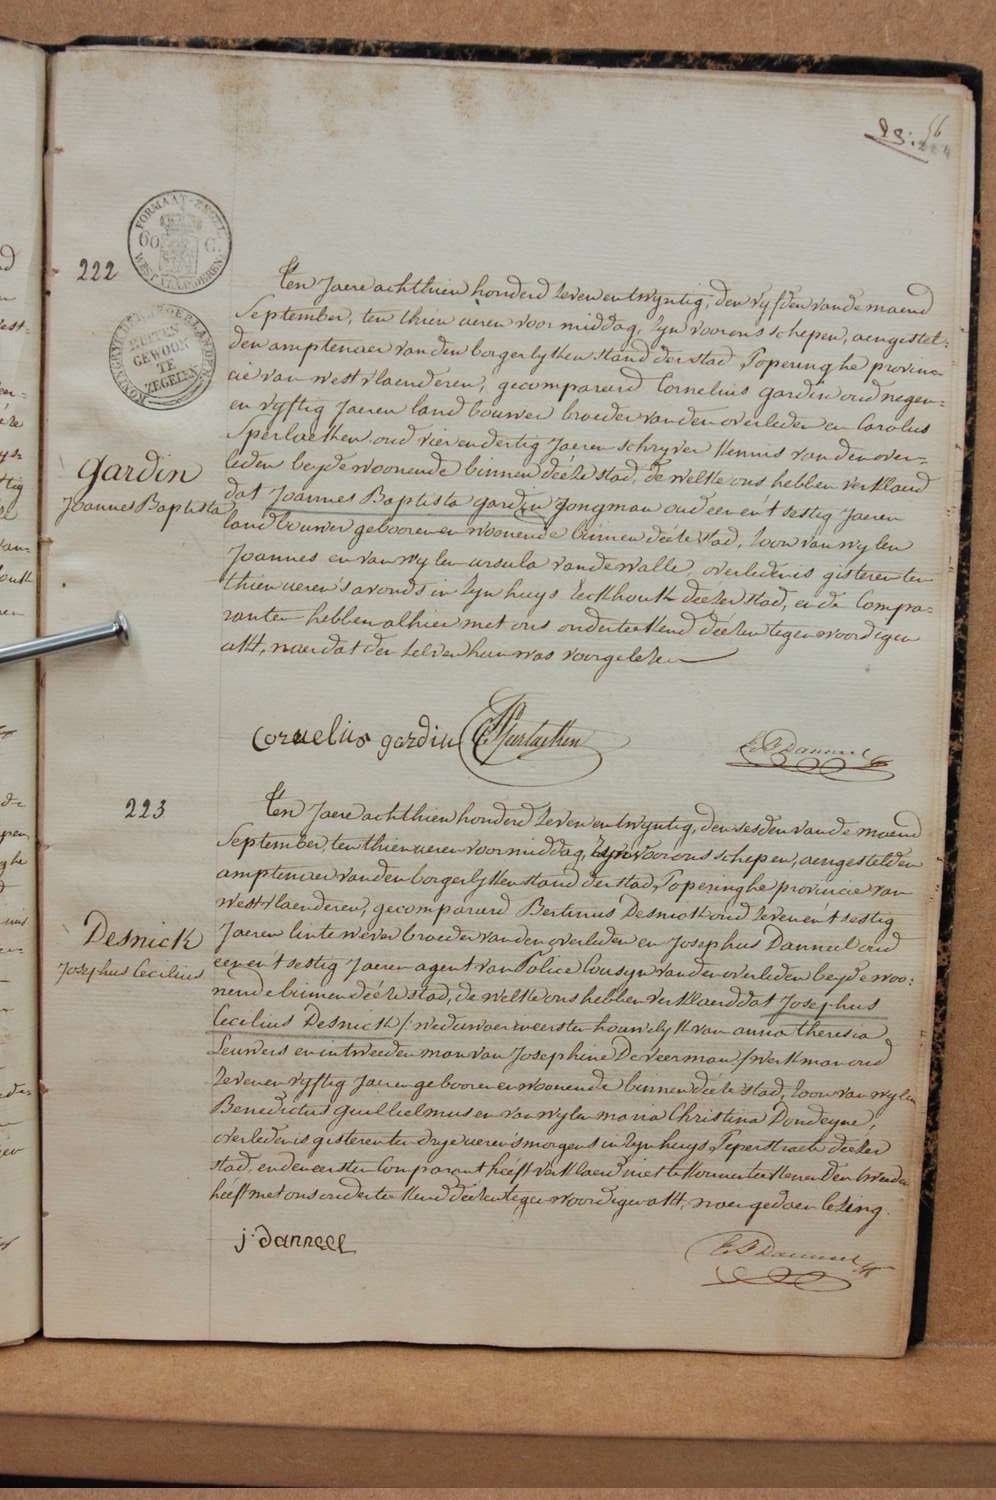 56
FORMAAT-ZEGEL
60 C.
WEST-VLAENDEREN
222
BUITEN
GEWOON
TE
ZEGELEN
Gardin
Joannes Baptista
Ten Jaere achthien honderd Zeven en twyntig, den vyfden van de maend
September, ten thien ueren voormiddag, Zyn voor ons schepen, aengestel-
den amptenaer van den borgerlyken stand der stad Poperinghe provin-
cie van westvlaenderen, gecompareerd Cornelius Gardin oud negen-
en vyftig Jaeren landbouwer broeder van den overleden en Carolus
Sperlaeken oud vier en dertig Jaeren schryver Kennis van den over-
leden beyde woonende binnen deéze stad, de welke ons hebben verklaerd
dat Joannes Baptista Gardin Jongman oud een en 't sestig Jaeren
landbouwer gebooren en woonende binnen deéze stad, Zoon van wylen
Joannes en van wylen ursula vandewalle, overleden is gisteren ten
thien ueren 's avonds in Zyn huys Eekhoutk deézer stad, en de Compa-
ranten hebben alhier met ons onderteekend deézen tegenwoordigen
akt, naer dat den Zelven hun was voorgelezen
cornelius gardin
223
Desnick
Josephus Cecilius
Ten Jaere achthien honderd Zeven en twyntig, den sesden van de maend
September, ten thien ueren voormiddag, Zyn voor ons schepen, aengestelden
amptenaer van den borgerlyken stand der stad Poperinghe provincie van
westvlaenderen, gecompareerd Bertinus Desnick oud Zeven en 't sestig
Jaeren lintewever broeder van den overleden en Josephus Danneel oud
een en 't sestig Jaeren agent van Police Cousyn van den overleden beyde woo-
nende binnen deéze stad, de welke ons hebben verklaerd dat Josephus
Cecilius Desnick /: weduwaer in eersten houwelyk van anna theresia
Leuwers en in tweeden man van Josephine Deveerman :/ werkman oud
Zeven en vyftig Jaeren gebooren en woonende binnen deéze stad, Zoon van wylen
Benedictus Guilielmus en van wylen maria Christina Dondeyne,
overleden is gisteren ten drye ueren 's morgens in Zyn huys Peperstraete deézer
stad, en den eersten Comparant heéft verklaerd niet te konnen teekenen den tweeden
heéft met ons onderteekend deézen tegenwoordigen akt, naer gedaen lezing.
j. danneel